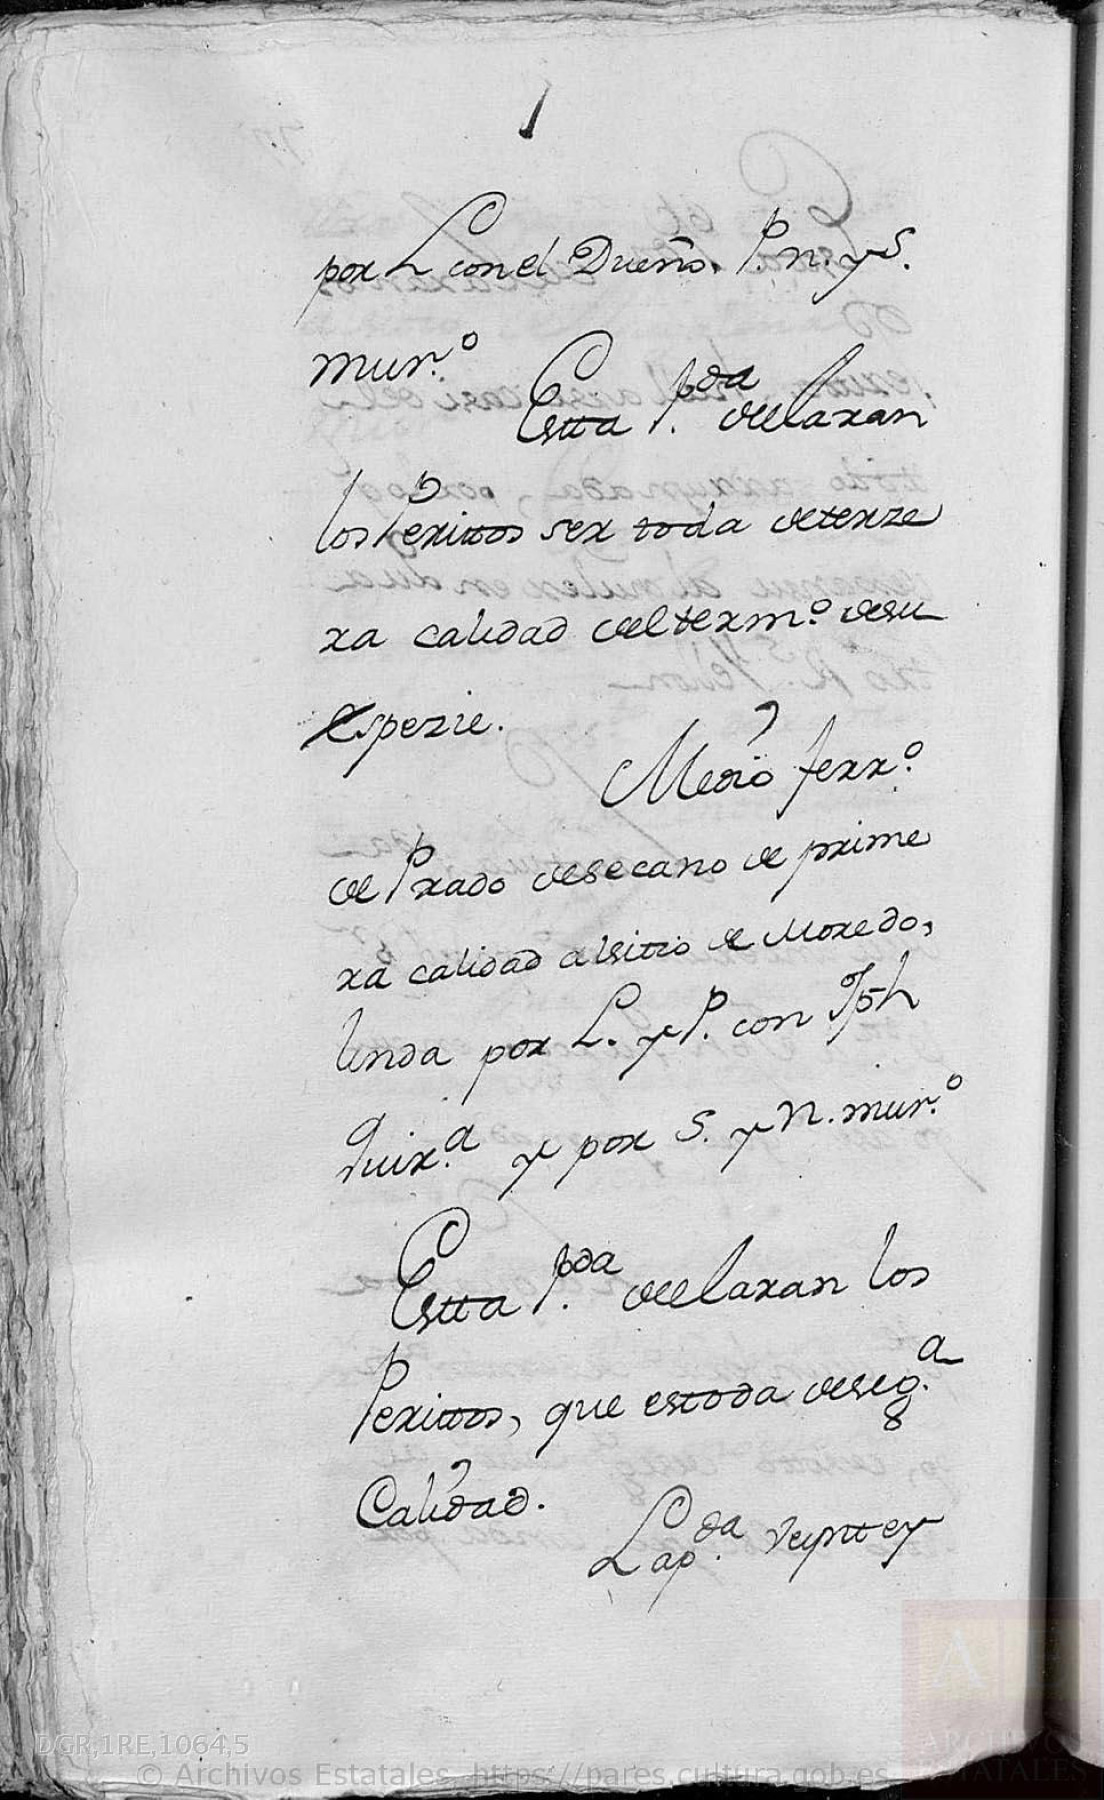 por L con el Dueño. P. n. y S.
mur.º
Estta P.da declaran
los Peritos ser toda de terze
ra calidad del term.º de su
espezie.
Medio ferr.º
de Prado de secano de prime
ra calidad al sitio de Moredo,
linda por L. y P. con Jph
Quir.a y por S. y N. mur.º
Estta P.da declaran los
Peritos, que es toda de seg.a
Calidad.
La p.da Veyntte y
DGR,1RE,1064,5
© Archivos Estatales https://pares.cultura.gob.es
ARCHIVOS
ESTATALES